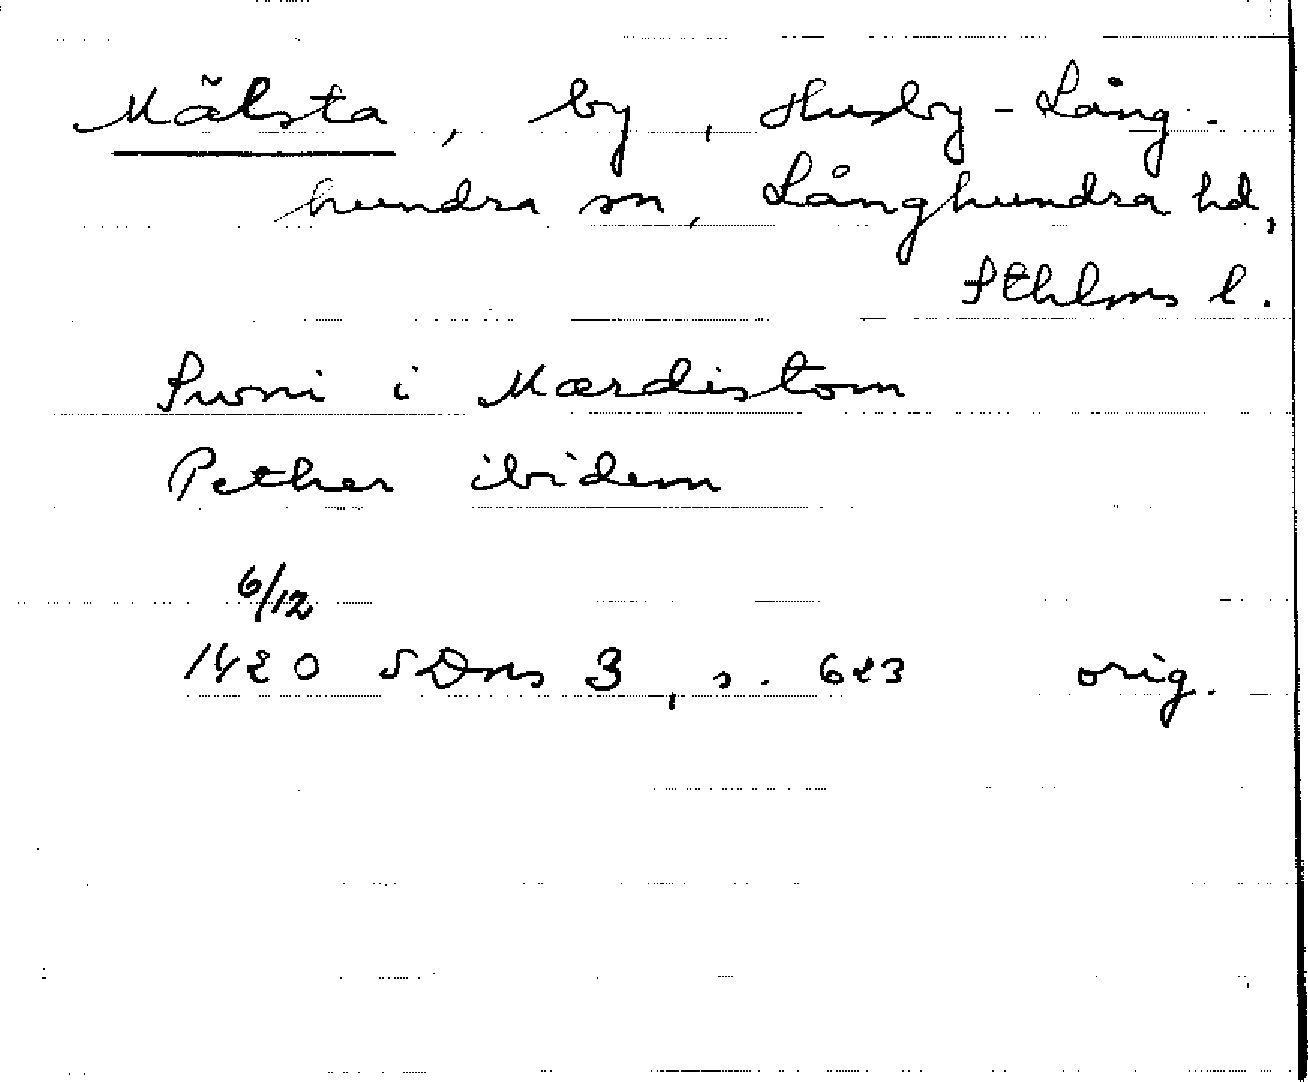 Mälsta, by, Husby-Lång-
hundra sn, Långhundra hd,
Sthlms l.
Suni i Mærdistom
Pether ibidem
6/12
1420 SDns 3, s. 623 orig.